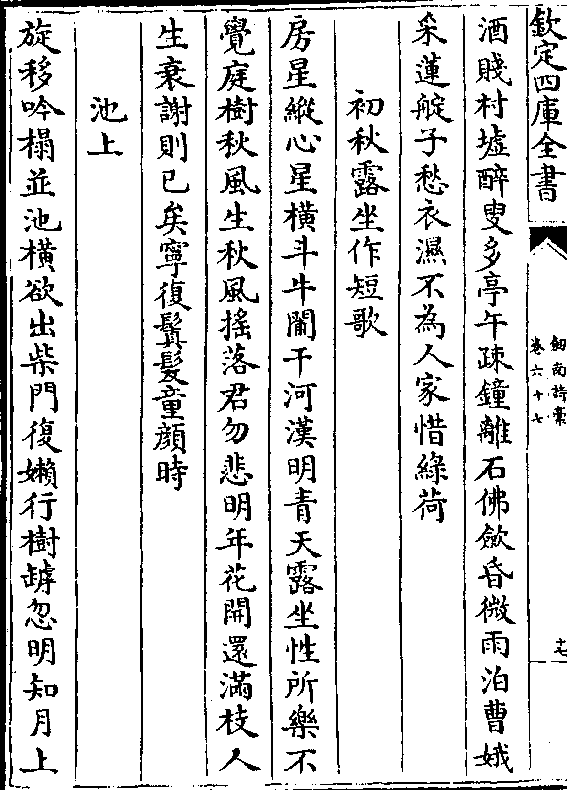 欽定四庫全書
劍南詩稾
卷六十七
十七
酒賤村墟醉叟多亭午疎鐘離石佛斂昏微雨泊曹娥
采蓮艇子愁衣濕不為人家惜綠荷
初秋露坐作短歌
房星縱心星橫斗牛闌干河漢明青天露坐性所樂不
覺庭樹秋風生秋風揺落君勿悲明年花開還滿枝人
生衰謝則已矣寧復鬒髮童顔時
池上
旋移吟榻並池橫欲出柴門復嬾行樹罅忽明知月上